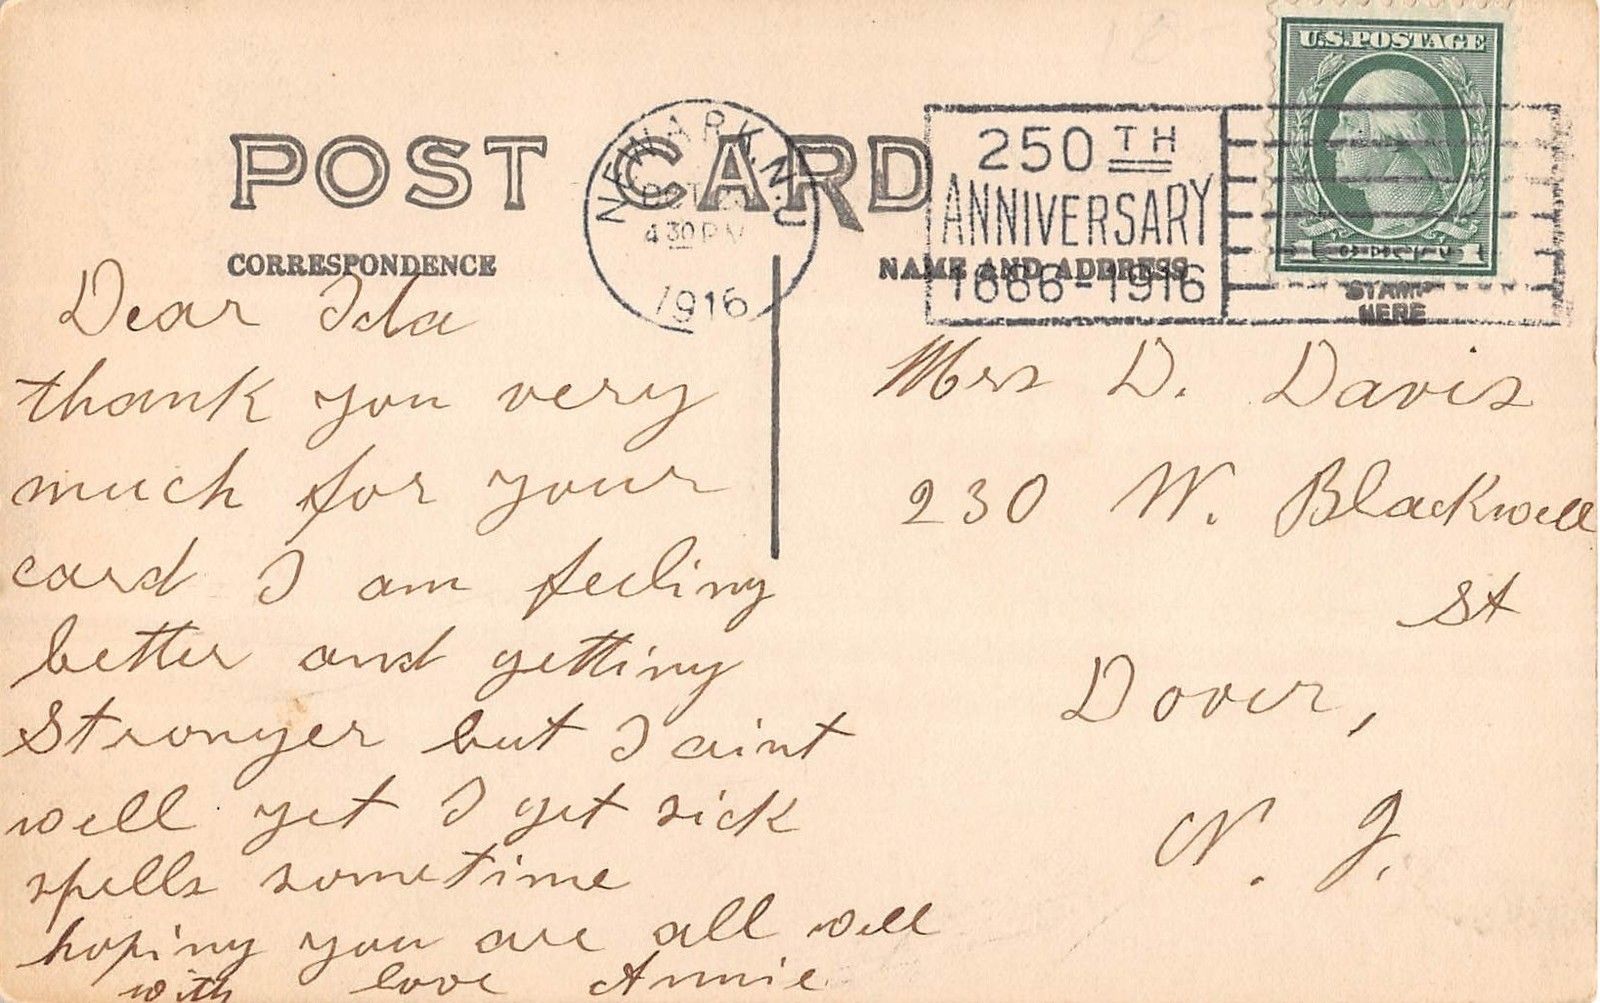 U.S.POSTAGE
POST CARD
NEWARK, N.J.
OCT
4 30 PM
1916
250TH
ANNIVERSARY
1666-1916
CORRESPONDENCE
NAME AND ADDRESS
STAMP
HERE
Dear Ida
thank you very
much for your
card I am feeling
better and getting
Stronger but I aint
well yet I get sick
spells sometime
hoping you are all well
with love Annie
Mrs D. Davis
230 W. Blackwell
St
Dover,
N. J.